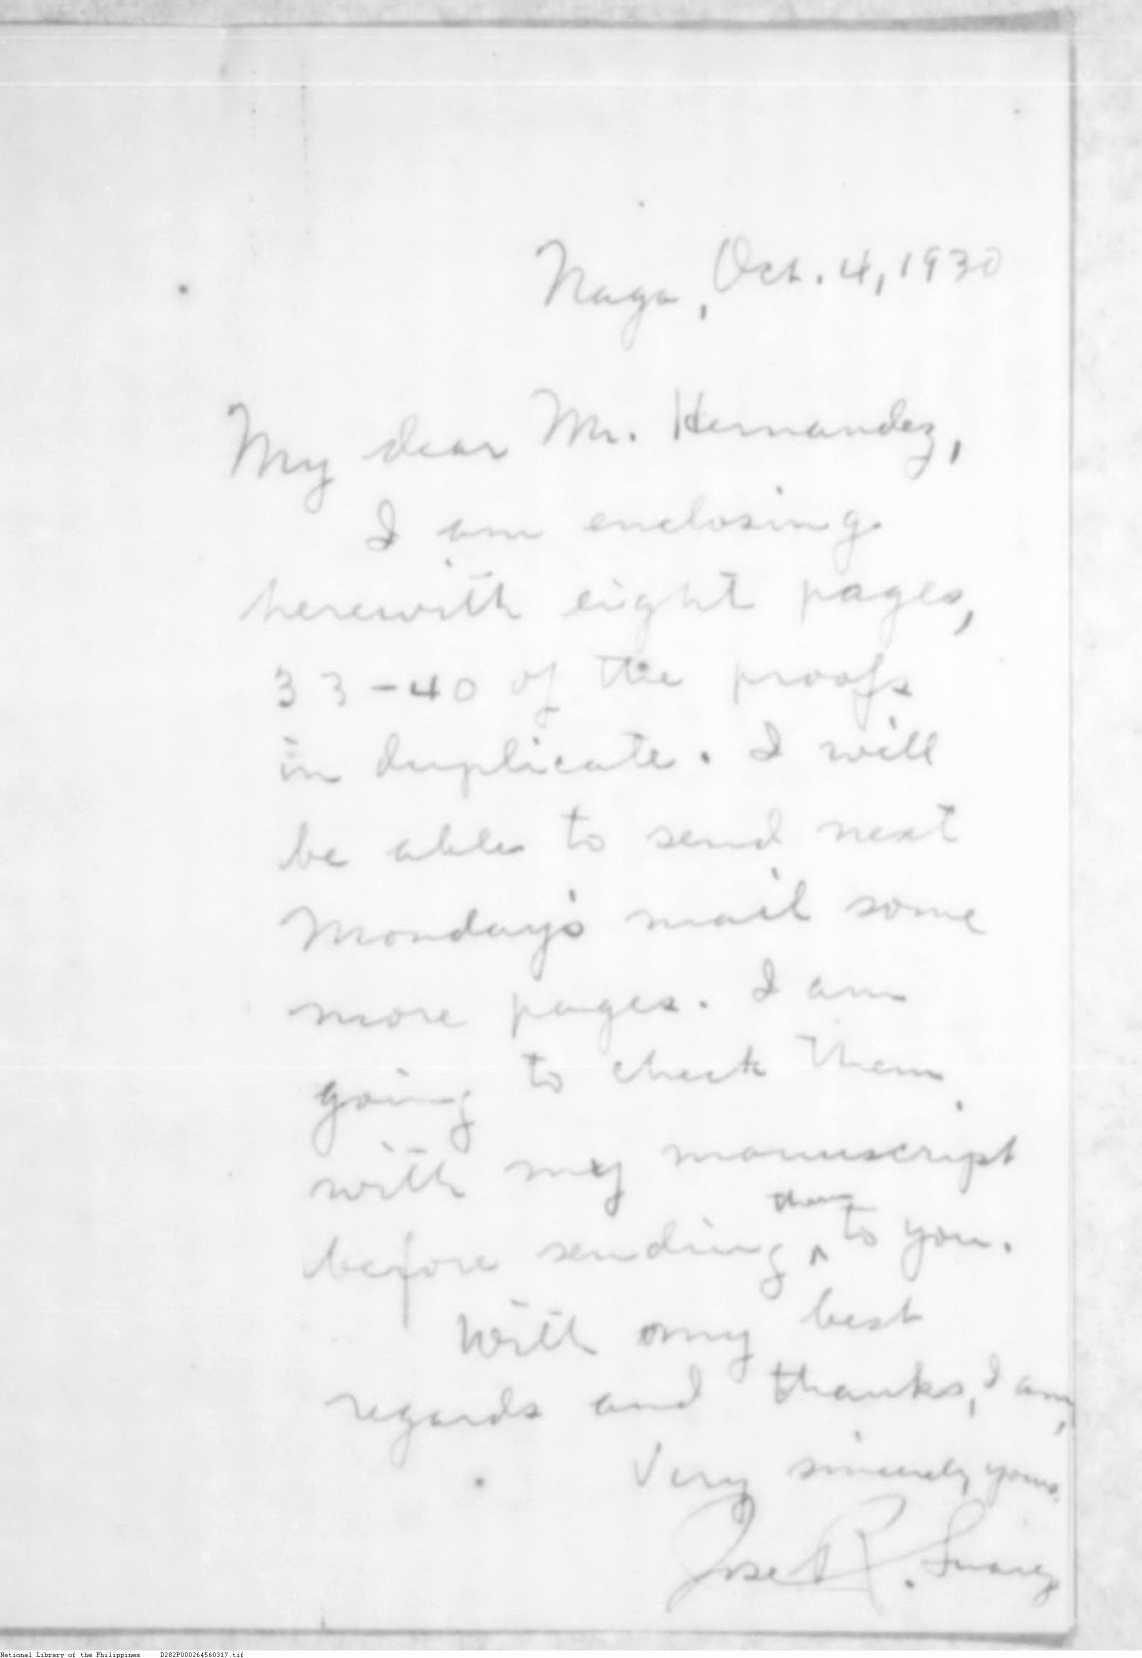 Naga, Oct. 4, 1930
My dear Mr. Hernandez,
I am enclosing
herewith eight pages,
33-40 of the proofs
in duplicate. I will
be able to send next
Monday's mail some
more pages. I am
going to check them
with my manuscript
before sending them to you.
With my best
regards and thanks, I am,
Very sincerely yours,
Jose R. Suarez
National Library of the Philippines D282P000264560317.tif